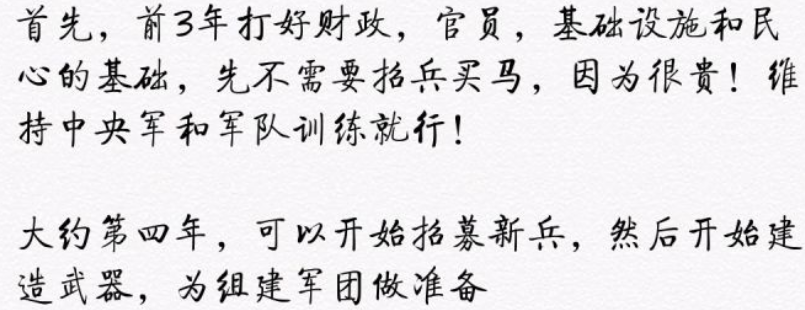 首先，前3年打好财政，官员，基础设施和民
心的基础，先不需要招兵买马，因为很贵！维
持中央军和军队训练就行！
大约第四年，可以开始招募新兵，然后开始建
造武器，为组建军团做准备